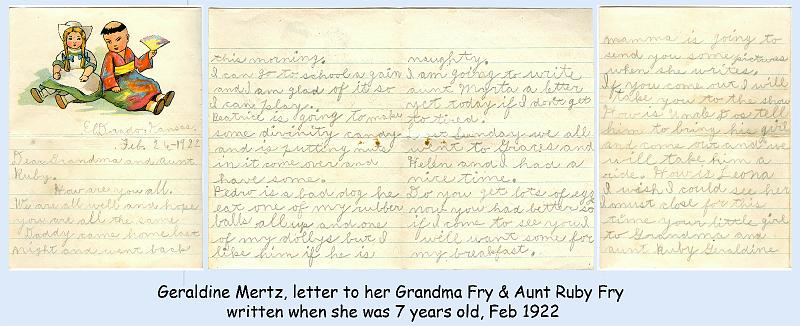 El Dorado, Kansas.
Feb. 24-1922
Dear Grandma and aunt
Ruby.
How are you all.
We are all well and hope
you are all the same.
Daddy came home last
night and went back
this morning.
I can go to school again
and I am glad of it so
I can play.
Beatrice is going to make
some divinity candy
and is putting nuts
in it come over and
have some.
Pedro is a bad dog he
eat one of my rubber
balls all up and one
of my dollys but I
like him if he is
naughty.
I am going to write
aunt Myrta a letter
yet today if I don't get
to tired.
Last Sunday we all
went to Graces and
Helen and I had a
nice time.
Do you get lots of egg
now you had better so
if I come to see you I
will want some for
my breakfast.
mamma is going to
send you some pictures
when she writes.
If you come out I will
take you to the show
How is Unkle Dos tell
him to bring his girl
and come out and we
will take him a
ride. How is Leona
I wish I could see her
I must close for this
time your little girl
to Grandma and
aunt Ruby Geraldine
Geraldine Mertz, letter to her Grandma Fry & Aunt Ruby Fry
written when she was 7 years old, Feb 1922